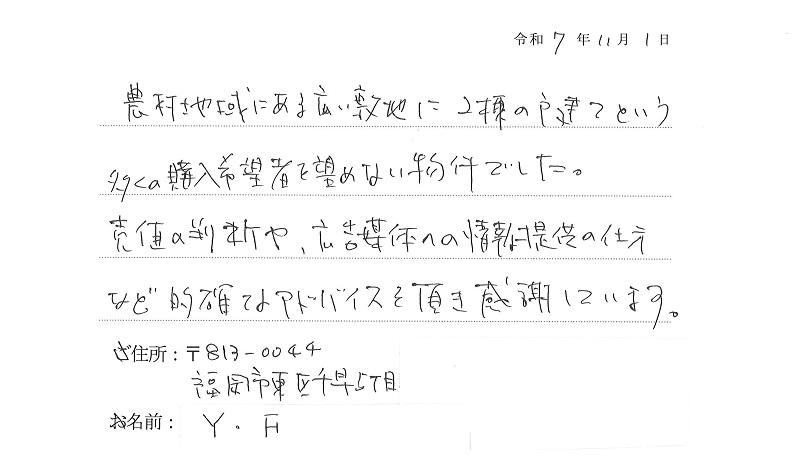 令和 7 年 11 月 1 日
農村地域にある広い敷地に2棟の戸建てという
多くの購入希望者を望めない物件でした。
売値の判断や、広告媒体への情報提供の仕方
など的確なアドバイスを頂き感謝しています。
ご住所：〒813-0044
福岡市東区千早5丁目
お名前： Y．H